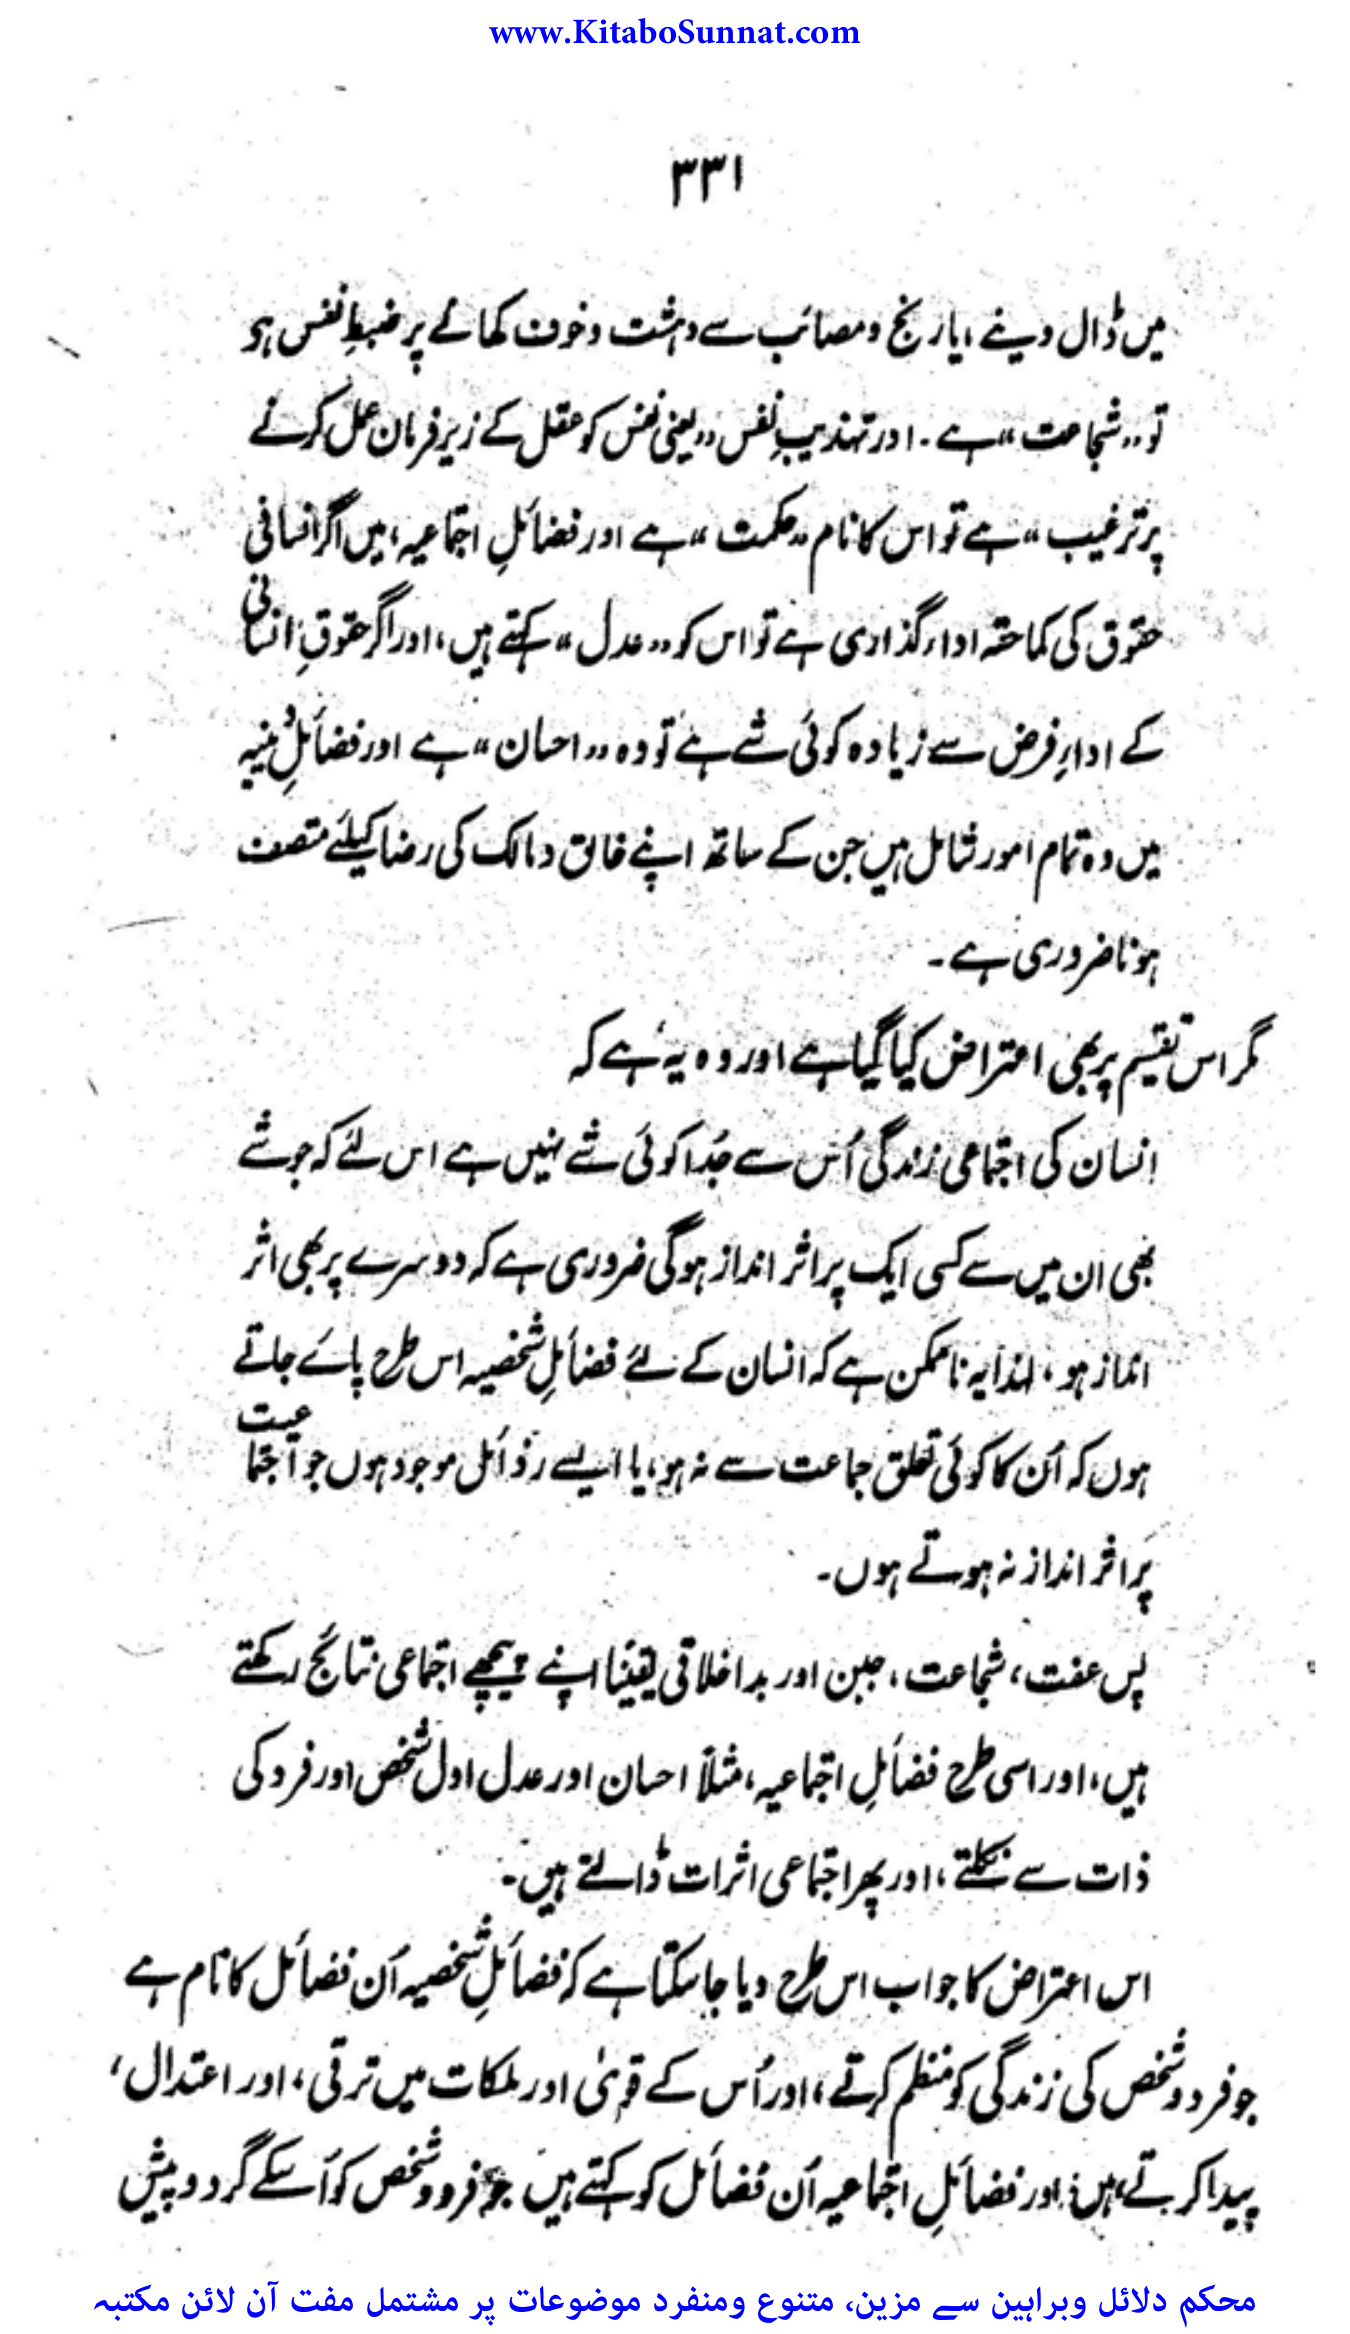 www.KitaboSunnat.com
۳۳۱
میں ڈال دینے، یا رنج و مصائب سے دہشت و خوف کھانے پر ضبطِ نفس ہو
تو ،،شجاعت“ ہے۔ اور تہذیبِ نفس ،،یعنی نفس کو عقل کے زیر فرمان عمل کرنے
پر ترغیب“ ہے تو اس کا نام ،،حکمت“ ہے اور فضائلِ اجتماعیہ، میں اگر انسانی
حقوق کی کماحقہ ادارگذاری ہے تو اس کو ،،عدل“ کہتے ہیں، اور اگر حقوقِ انسانی
کے اداءِ فرض سے زیادہ کوئی شے ہے تو وہ ،،احسان“ ہے اور فضائلِ دُینیہ
میں وہ تمام امور شامل ہیں جن کے ساتھ اپنے خالق و مالک کی رضا کیلئے متصف
ہونا ضروری ہے۔
مگر اس تقسیم پر بھی اعتراض کیا گیا ہے اور وہ یہ ہے کہ
انسان کی اجتماعی زندگی اُس سے جُدا کوئی شے نہیں ہے اس لئے کہ جو شے
بھی ان میں سے کسی ایک پر اثر انداز ہوگی ضروری ہے کہ دوسرے پر بھی اثر
انداز ہو، لہٰذا یہ ناممکن ہے کہ انسان کے لئے فضائلِ شخصیہ اس طرح پائے جاتے
ہوں کہ اُن کا کوئی تعلق جماعت سے نہ ہو، یا ایسے رذائل موجود ہوں جو اجتماعیت
پر اثر انداز نہ ہوتے ہوں۔
پس عفت، شجاعت، جبن اور بداخلاقی یقیناً اپنے پیچھے اجتماعی نتائج رکھتے
ہیں، اور اسی طرح فضائلِ اجتماعیہ، مثلاً احسان اور عدل اول شخص اور فرد کی
ذات سے نکلتے، اور پھر اجتماعی اثرات ڈالتے ہیں۔
اس اعتراض کا جواب اس طرح دیا جاسکتا ہے کہ فضائلِ شخصیہ اُن فضائل کا نام ہے
جو فرد و شخص کی زندگی کو منظم کرتے، اور اُس کے قویٰ اور ملکات میں ترقی، اور اعتدال،
پیدا کرتے ہیں، اور فضائلِ اجتماعیہ اُن فضائل کو کہتے ہیں جو فرد و شخص کو اُسکے گرد و پیش
محکم دلائل وبراہین سے مزین، متنوع ومنفرد موضوعات پر مشتمل مفت آن لائن مکتبہ